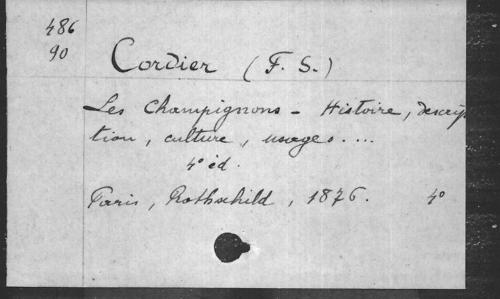 486
90
Cordier (F. S.)
Les Champignons - Histoire, descrip
tion, culture, usages. ...
4e éd.
Paris, Rothschild, 1876. 4°